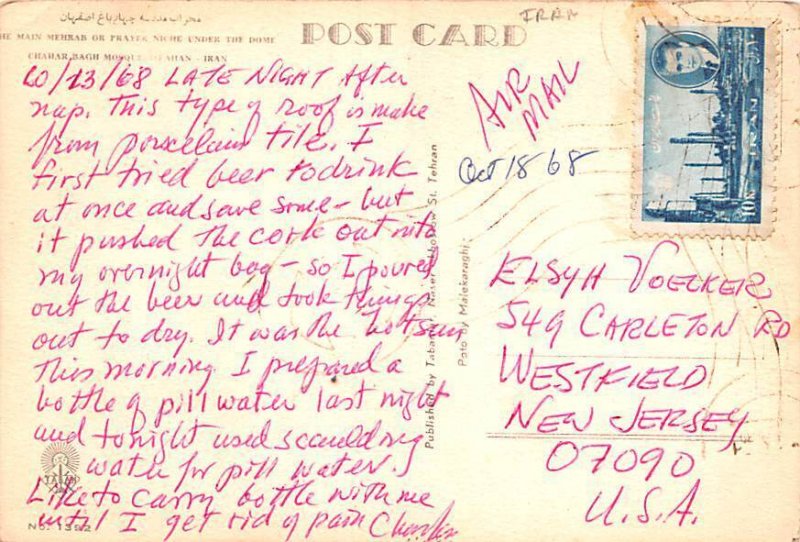 محراب مدرسه چهارباغ اصفهان
HE MAIN MEHRAB OR PRAYER NICHE UNDER THE DOME
CHAHAR BAGH MOSQUE ISFAHAN - IRAN
POST CARD
IRAN
10/13/68 LATE NIGHT After
nap. This type of roof is make
from porcelain tile. I
first tried beer to drink
at once and save some - but
it pushed the cork out into
my overnight bag - so I poured
out the beer and took things
out to dry. It was the hot sun
this morning. I prepared a
bottle of pill water last night
and tonight used scaulding
water for pill water.
Like to carry bottle with me
until I get rid of pain
No. 1392
Published by Tabai Naser Khosrow St. Tehran
Poto by Malekaraghi
AIR
MAIL
Oct 18 68
10R IRAN
ELSYH VOELKER
549 CARLETON RD
WESTFIELD
NEW JERSEY
07090
U.S.A.